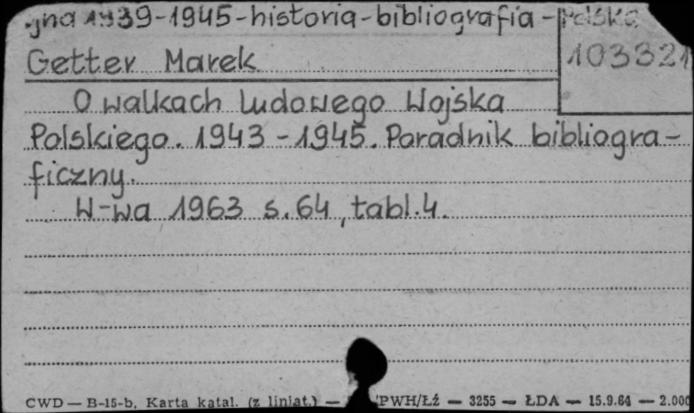 jna 1939-1945-historia-bibliografia-Polska
Getter Marek
103321
O walkach ludowego Wojska
Polskiego. 1943-1945. Poradnik bibliogra-
ficzny.
W-wa 1963 s. 64, tabl. 4.
CWD — B-15-b, Karta katal. (z liniat.) — PWH/Łź — 3255 — ŁDA — 15.9.64 — 2.000